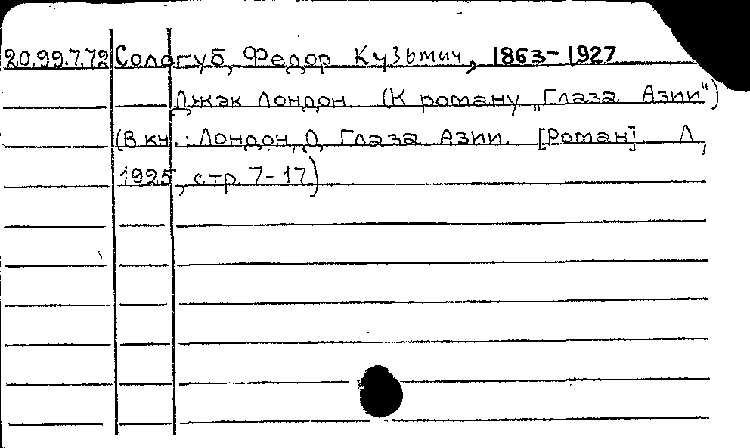 20.99.7.72 Сологуб, Федор Кузьмич, 1863-1927
Джэк Лондон. (К роману „Глаза Азии")
(В кн.: Лондон, Д. Глаза Азии. [Роман]. Л.,
1925, стр. 7-17)